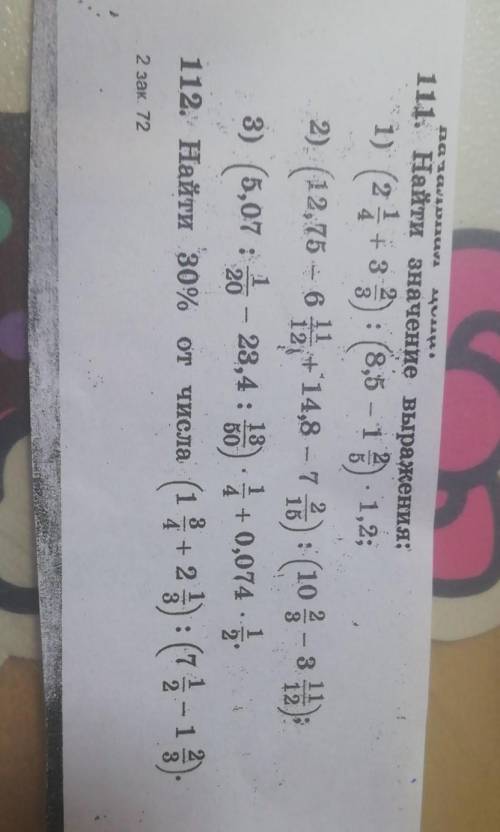 111. Найти значение выражения:
1) (2 1/4 + 3 2/3) : (8,5 − 1 2/5) · 1,2;
2) (12,75 − 6 11/12 + 14,8 − 7 2/15) : (10 2/3 − 3 11/12);
3) (5,07 : 1/20 − 23,4 : 13/50) · 1/4 + 0,074 · 1/2.
112. Найти 30% от числа (1 3/4 + 2 1/3) : (7 1/2 − 1 2/3).
2 зак. 72